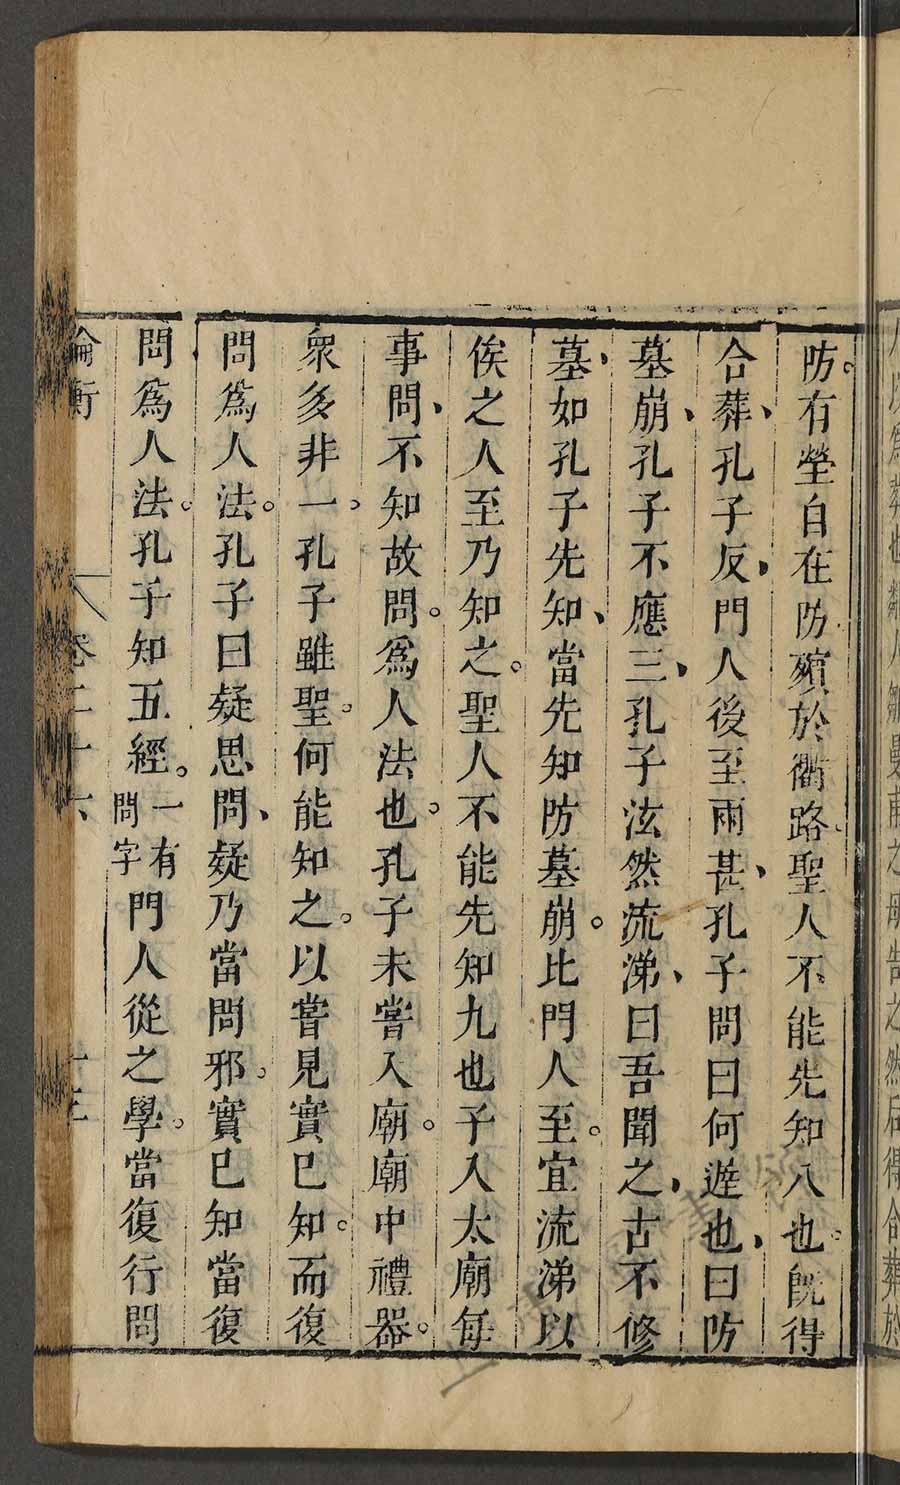 人以爲葬也鄰人鄒曼甫之母告之然后得合葬於
防。有塋自在防殯於衢路。聖人不能先知八也。既得
合葬、孔子反、門人後至雨甚、孔子問曰何遲也、曰防
墓崩、孔子不應三、孔子泫然流涕、曰吾聞之、古不修
墓、如孔子先知、當先知防墓崩。比門人至。宜流涕以
俟之人至乃知之。聖人不能先知九也子入太廟每
事問、不知故問。爲人法也。孔子未嘗入廟。廟中禮器。
衆多非一。孔子雖聖。何能知之。以嘗見實已知。而復
問爲人法。孔子曰疑思問、疑乃當問邪。實已知當復
問爲人法。孔子知五經。一有問字。門人從之學。當復行問
論衡 卷二十六